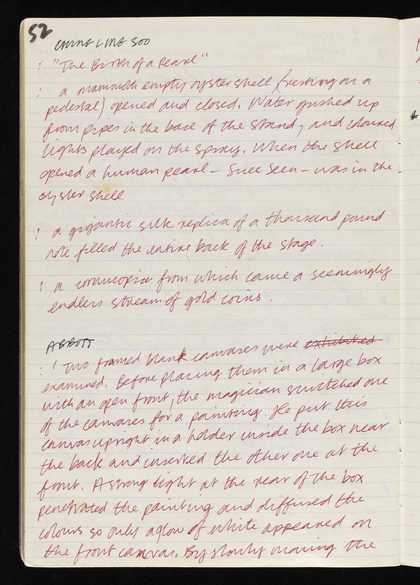 52
CHUNG LING SOO
: "The Birth of a Pearl"
: a mammoth empty oyster shell (resting on a
pedestal) opened and closed. Water gushed up
from pipes in the base of the stand, and coloured
lights played on the spray. When the shell
opened a human pearl – Suee Seen – was in the
oyster shell
: a gigantic silk replica of a thousand pound
note filled the entire back of the stage.
: a cornucopia from which came a seemingly
endless stream of gold coins.
ABBOTT
: 'Two framed blank canvases were exhibited
examined. Before placing them in a large box
with an open front, the magician switched one
of the canvases for a painting. He put this
canvas upright in a holder inside the box near
the back and inserted the other one at the
front. A strong light at the rear of the box
penetrated the painting and diffused the
colours so only a glow of white appeared on
the front canvas. By slowly moving the